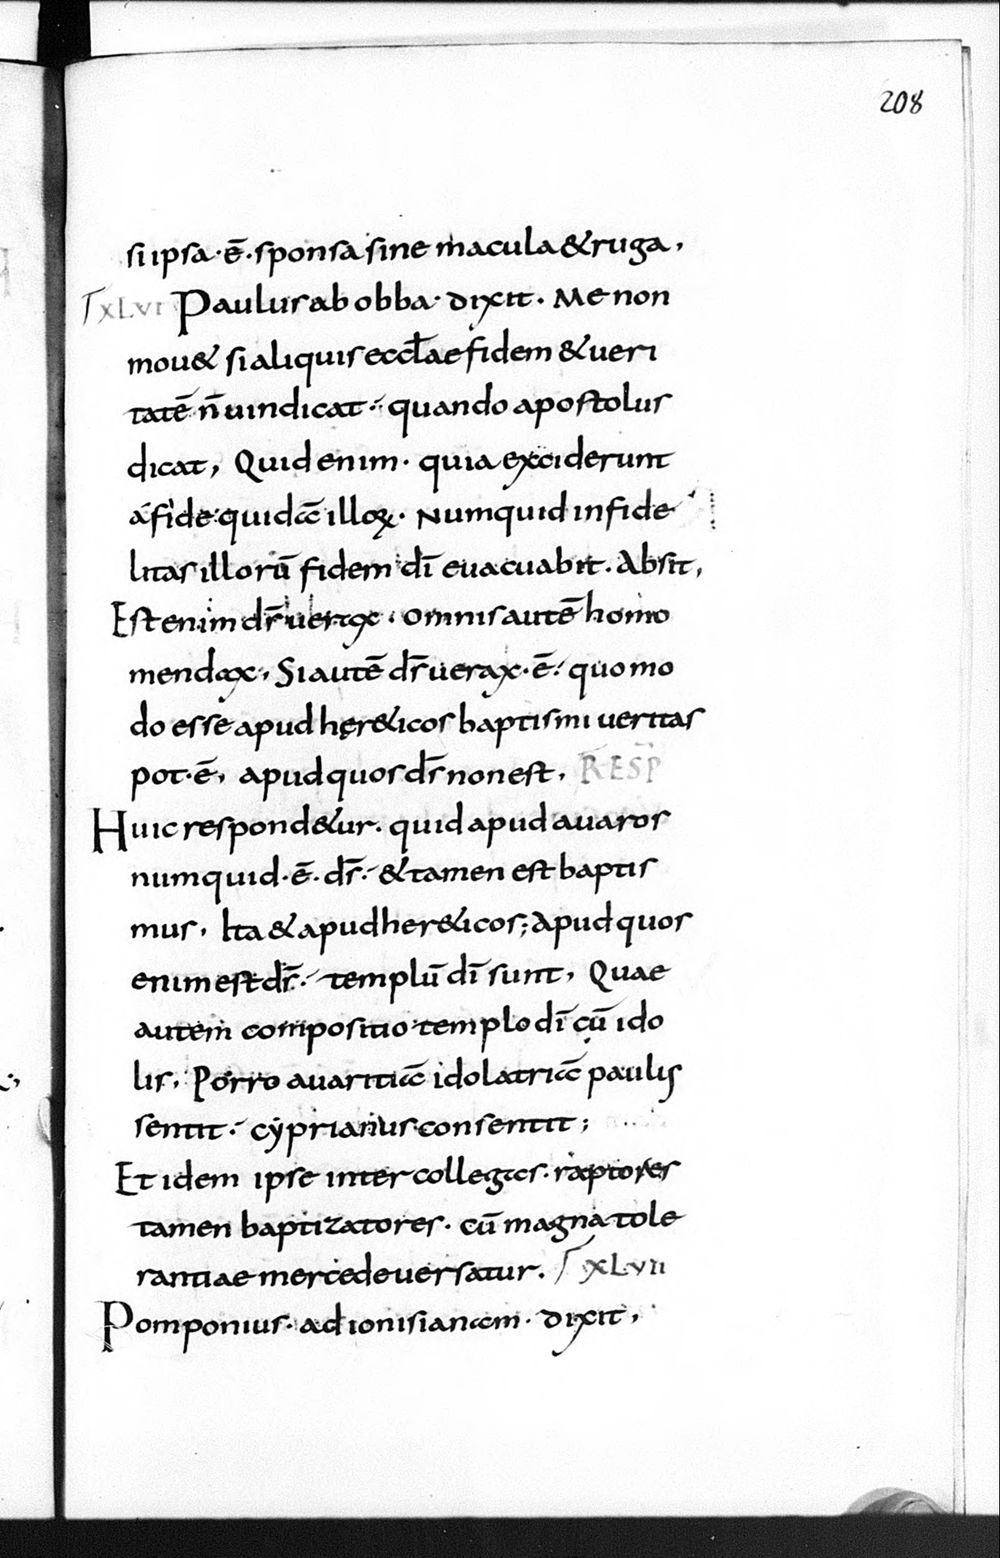 208
si ipsa · ē · sponsa sine macula & ruga,
XLVI Paulus ab obba · dixit · Me non
mou& si aliquis eccłae fidem & ueri
tatē n̄ uindicat · quando apostolus
dicat, Quid enim · quia exciderunt
a fide quidā illoꝝ · Numquid infide
litas illorū fidem dī euacuabit · Absit,
Est enim dr̄ uerax · omnis autē homo
mendax, Si autē dr̄ uerax · ē · quomo
do esse apud her&icos baptismi ueritas
pot · ē, apud quos dr̄ non est, RESP
Huic respond&ur · quid apud auaros
numquid · ē · dr̄ · & tamen est baptis
mus, Ita & apud her&icos; Apud quos
enim est dr̄ · templū dī sunt, Quae
autem compositio templo dī cū ido
lis, Porro auaritiā idolatriā paulus
sentit · cyprianus consentit;
Et idem ipse inter collegas · raptores
tamen baptizatores · cū magna tole
rantiae mercede uersatur. XLVII
Pomponius · a dionisianam · dixit,